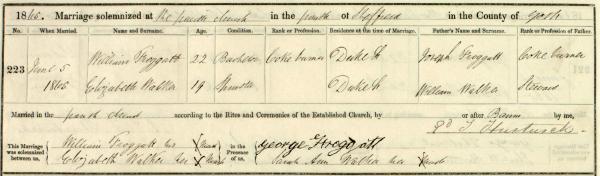 1865. Marriage solemnized at the parish church in the parish of Sheffield in the County of York
No. When Married. Name and Surname. Age. Condition. Rank or Profession. Residence at the time of Marriage. Father's Name and Surname. Rank or Profession of Father.
223 June 5 1865 William Froggatt 22 Bachelor Coke burner Duke St Joseph Froggatt Coke burner
Elizabeth Walker 19 Spinster Duke St William Walker
Married in the parish church according to the Rites and Ceremonies of the Established Church, by or after Banns by me,
This Marriage was solemnized between us, William Froggatt his X Mark in the Presence of us, george Froggatt
Elizabeth Walker her X Mark Sarah Ann Walker her X Mark